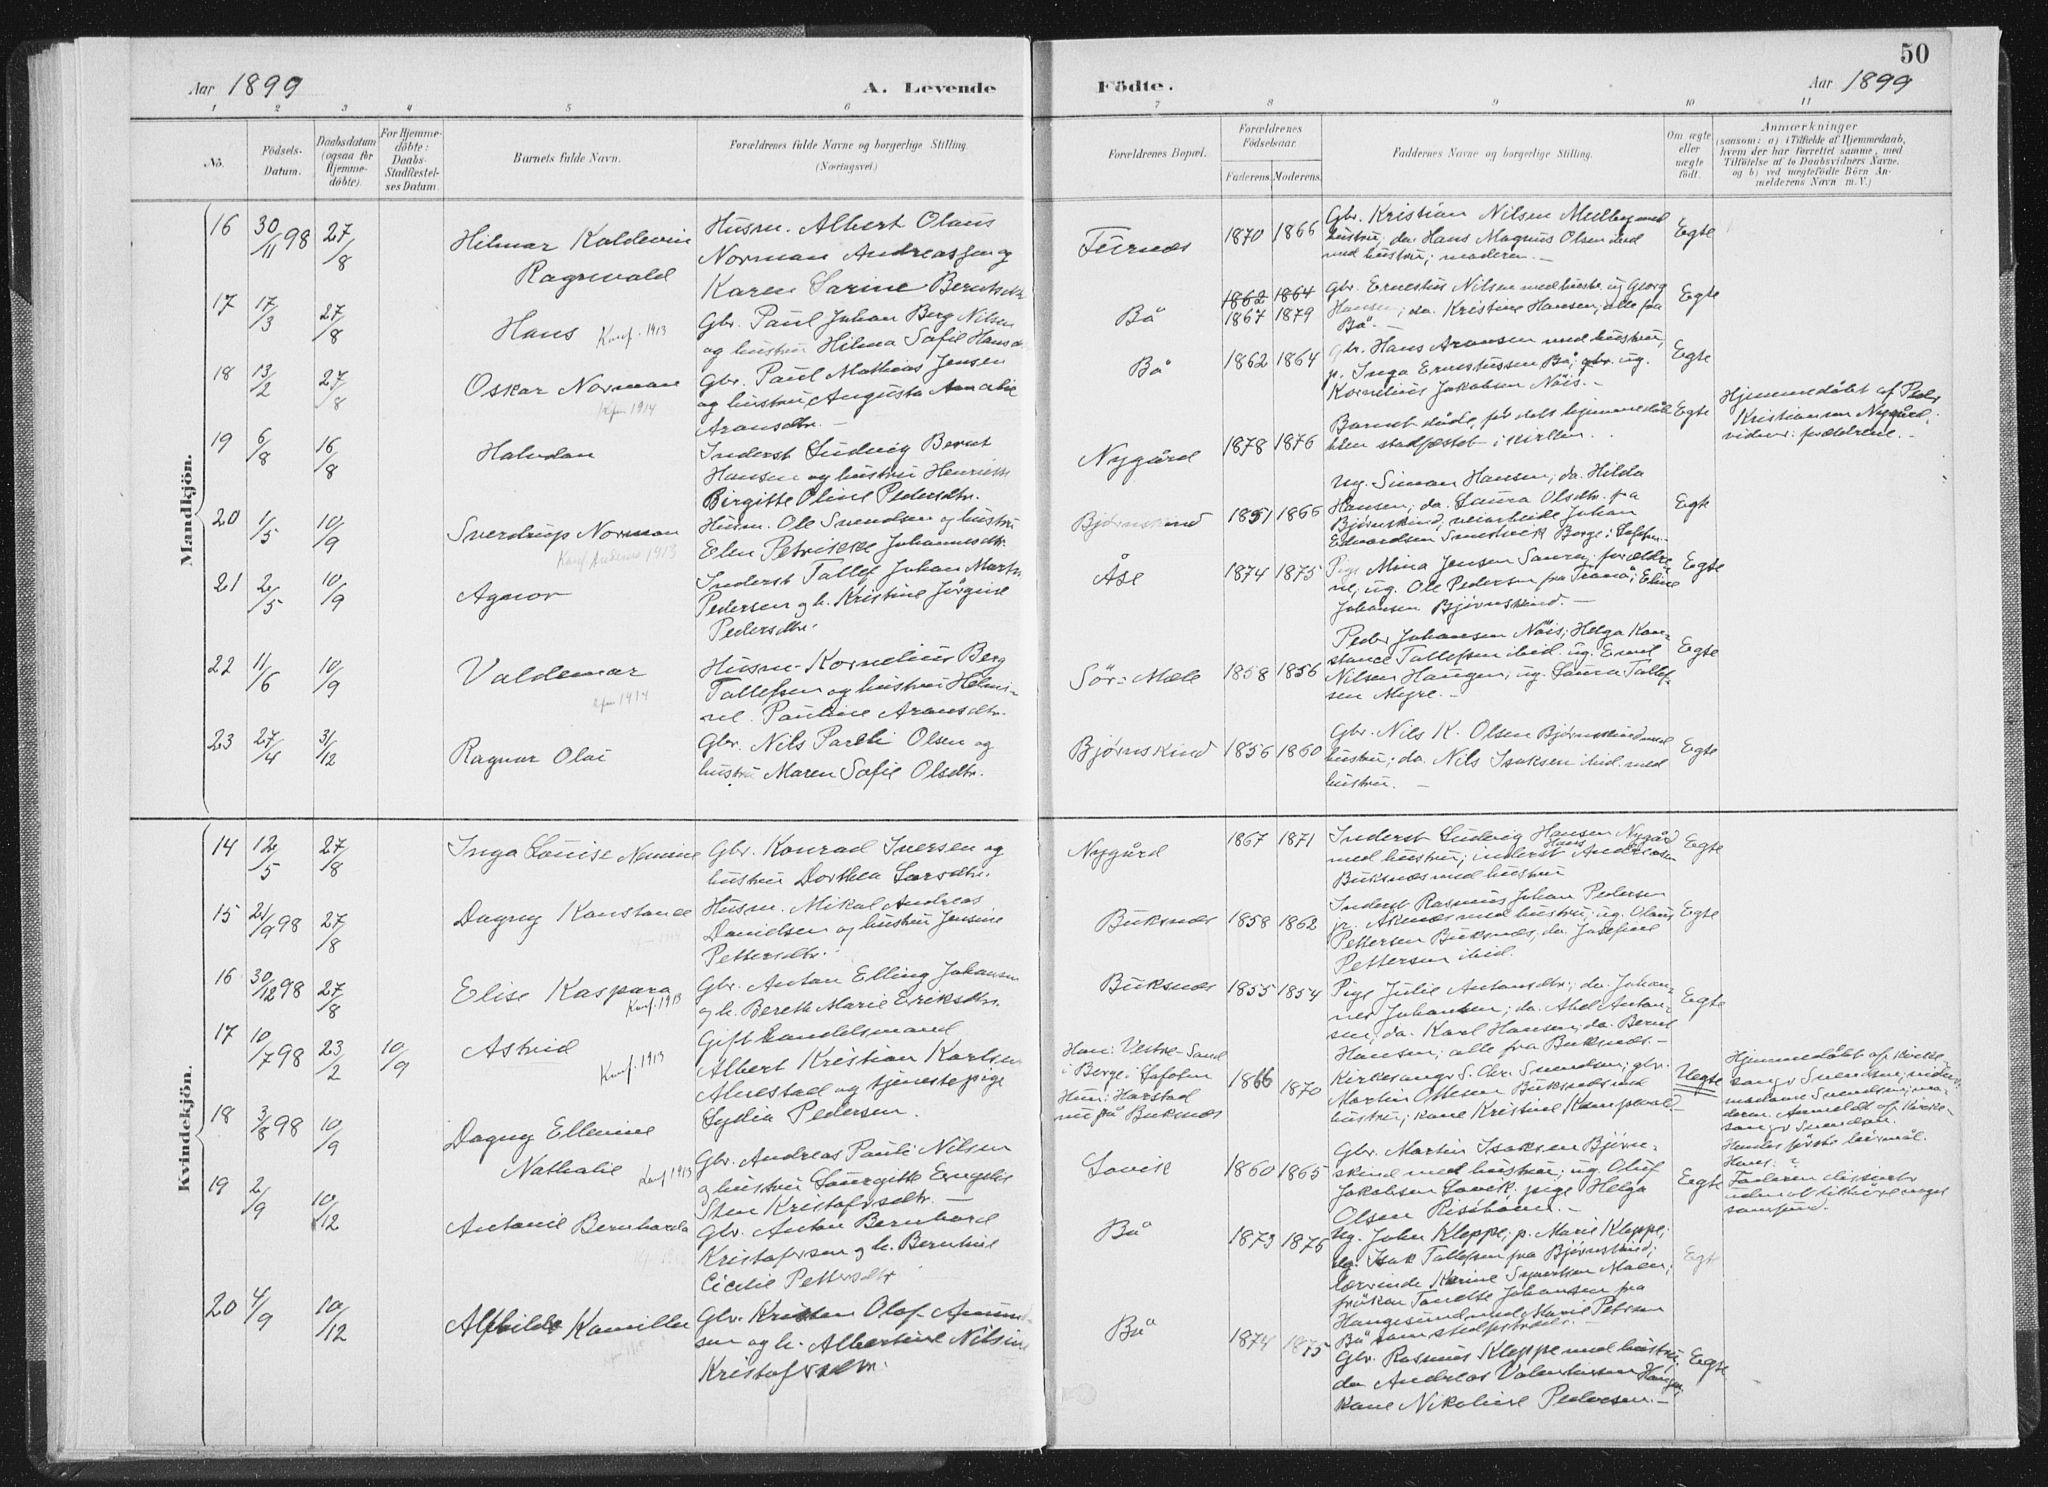 50
Aar 1899
A. Levende
Födte.
Aar 1899
1 2 3 4 5 6 7 8 9 10 11
No.
Födsels-
Datum.
Daabsdatum
(ogsaa for
Hjemme-
döbte).
For Hjemme-
döbte:
Daabs-
Stadfæstel-
ses Datum.
Barnets fulde Navn.
Forældrenes fulde Navne og borgerlige Stilling.
(Næringsvei.)
Forældrenes Bopæl.
Forældrenes
Födselsaar.
Faderens. Moderens.
Faddernes Navne og borgerlige Stilling.
Om ægte
eller
uægte
födt.
Anmærkninger
(saasom: a) i Tilfælde af Hjemmedaab,
hvem der har forrettet samme, med
Tilföielse af to Daabsvidners Navne.
og b) ved uægtefödte Börn An-
melderens Navn m. V.)
Mandkjön.
16 30/11 98 27/8
Hilmar Koldevin
Ragnvald
Husm. Albert Olaus
Norman Andreassen og
Karen Sarine Berntsdtr
1870 1866
Gbr. Kristian Nilsen Melberg med
hustru, do. Hans Magnus Olsen ibid
med hustru; moderen. –
Egte
17 17/3 27/8
Hans Konf. 1913
Gbr. Paul Johan Berg Nilsen
og hustru Hilma Sofie Hansd
Bö
1862 1864
1867 1879
Gbr. Ernestus Nilsen med hustru; ug Georg
Hansen; do. Kristine Hansen; alle fra
Bö. –
Egte
18 13/2 27/8
Oskar Norman
1914
Gbr. Paul Mathias Jensen
og hustru Augusta Amalie
Aronsdtr. –
Bö
1862 1864
Gbr. Hans Aronsen med hustru,
p. Inga Ernestussen Bö; ug.
Kornelius Jakobsen Nöis. –
Egte
19 6/8 16/8
Halvdan
Inderst Ludvig Bernt
Hansen og hustru Henriette
Birgitte Oline Pedersdtr.
Nygård
1878 1876
Barnet döde, för dets hjemmedåb
blev stadfæstet i kirken.
Egte
Hjemmedöbt af Peder
Kristiansen Nygård;
vidner: forældrene. –
20 1/5 10/9
Sverdrup Norman
Konf. Andenes 1913
Husm. Ole Svendsen og hustru
Elen Petrikke Johannesdtr.
Bjørnskind
1851 1866
Ug. Simon Hansen; do. Hilda
Hansen; do. Laura Olsdtr. fra
Bjørnskind; veiarbeide Johan
Edvardsen Borge i Lofoten.
Egte
21 2/5 10/9
Agnor
Inderst Tollef Johan Martin
Pedersen og h. Kristine Jörgine
Pedersdtr.
Åse
1874 1875
Pige Mina Jensen Saura; forældre-
ne; ug. Ole Pedersen fra Tranö; Eline
Johansen Bjørnskind. –
Egte
22 11/6 10/9
Valdemar
1914
Husm. Kornelius Berg
Tollefsen og hustru Helmi-
ne Pauline Aronsdtr.
Sör-Mæle
1858 1856
Peder Johansen Nöis; Helga Kon-
stance Tollefsen ibid. ug. Emil
Nilsen Haugen; ug. Laura Tollef-
sen Myre. –
Egte
23 27/4 31/12
Ragnar Olai
Gbr. Nils Pareli Olsen og
hustru Maren Sofie Olsdtr.
Bjørnskind
1856 1860
Gbr. Nils K. Olsen Bjørnskind med
hustru; do. Nils Isaksen ibid. med
hustru. –
Egte
Kvindekjön.
14 12/5 27/8
Inga Louise Nannine
Gbr. Konrad Iversen og
hustru Dorthea Larsdtr.
Nygård
1867 1871
Inderst Ludvig Hansen Nygård
med hustru; inderst Hans Andreasen
Buksnæs med hustru
Egte
15 21/9 98 27/8
Dagny Konstance
Husm. Mikal Andreas
Danielsen og hustru Jensine
Pettersdtr.
Buksnæs
1858 1862
Inderst Rasmus Johan Pedersen
p. Åknæs med hustru; ug. Olaus
Pettersen Buksnæs, do. Josefine
Pettersen ibid.
Egte
16 30/12 98 27/8
Elise Kaspara
Konf. 1913
Gbr. Anton Elling Johansen
og h. Bereth Marie Eriksdtr.
Buksnæs
1855 1854
Pige Julie Antonsdtr; do. Johan-
nes Johansen; do. Abel Anton-
sen; do. Karl Hansen; do. Bernt
Hansen; alle fra Buksnæs. –
Egte
17 10/7 98 23/2 10/9
Astrid
Konf. 1913
Gift handelsmand
Albert Kristian Karlsen
Almestad og tjenestepige
Lydia Pedersen.
Han: Vestre-Sand
i Borge i Lofoten
Hun: Harstad
nu på Buksnæs
1866 1870
Kirkesanger S. Chr. Svendsen; gbr.
Martin Ottesen Buksnæs med
hustru; kone Kristine
Uegte
Hjemmedöbt af kirke-
sanger Svendsen; vidner:
madame Svendsen; mo-
deren. Anmeldt af kirke-
sanger Svendsen.
Hendes förste leiermål.
Hans: ?
Faderen dissenter
uden at tilhöre noget
samfund.
18 3/8 98 10/9
Dagny Ellenine
Nathalie Konf. 1913
Gbr. Andreas Pauli Nilsen
og hustru Laurgitte Engelke
Stine Kristofersdtr. –
Lovik
1860 1865
Gbr. Martin Isaksen Bjørn-
skind med hustru; ug. Oluf
Jakobsen Lovik; pige Helga
Olsen –
Egte
19 2/9 10/12
Antonie Bernharda
Gbr. Anton Bernhard
Kristofersen og h. Bernhine
Cecilie Pettersdtr
Bö
1873 1876
Ug. Johan Kleppe; p. Marie Kleppe;
ug. Isak Tollefsen fra Bjørnskind;
lærerinde Karine
fröken Johansen fra
Haugesund med Marie Petersen
Bö som –
Egte
20 4/9 10/12
Alfhilde Kamilla
Gbr. Kristen Olaf Amund-
sen og h. Albertine Nilsine
Kristofersdtr.
Bö
1874 1875
Gbr. Rasmus Kleppe med hustru
do Andreas Valentinsen
kone Nikoline Pedersen. –
Egte